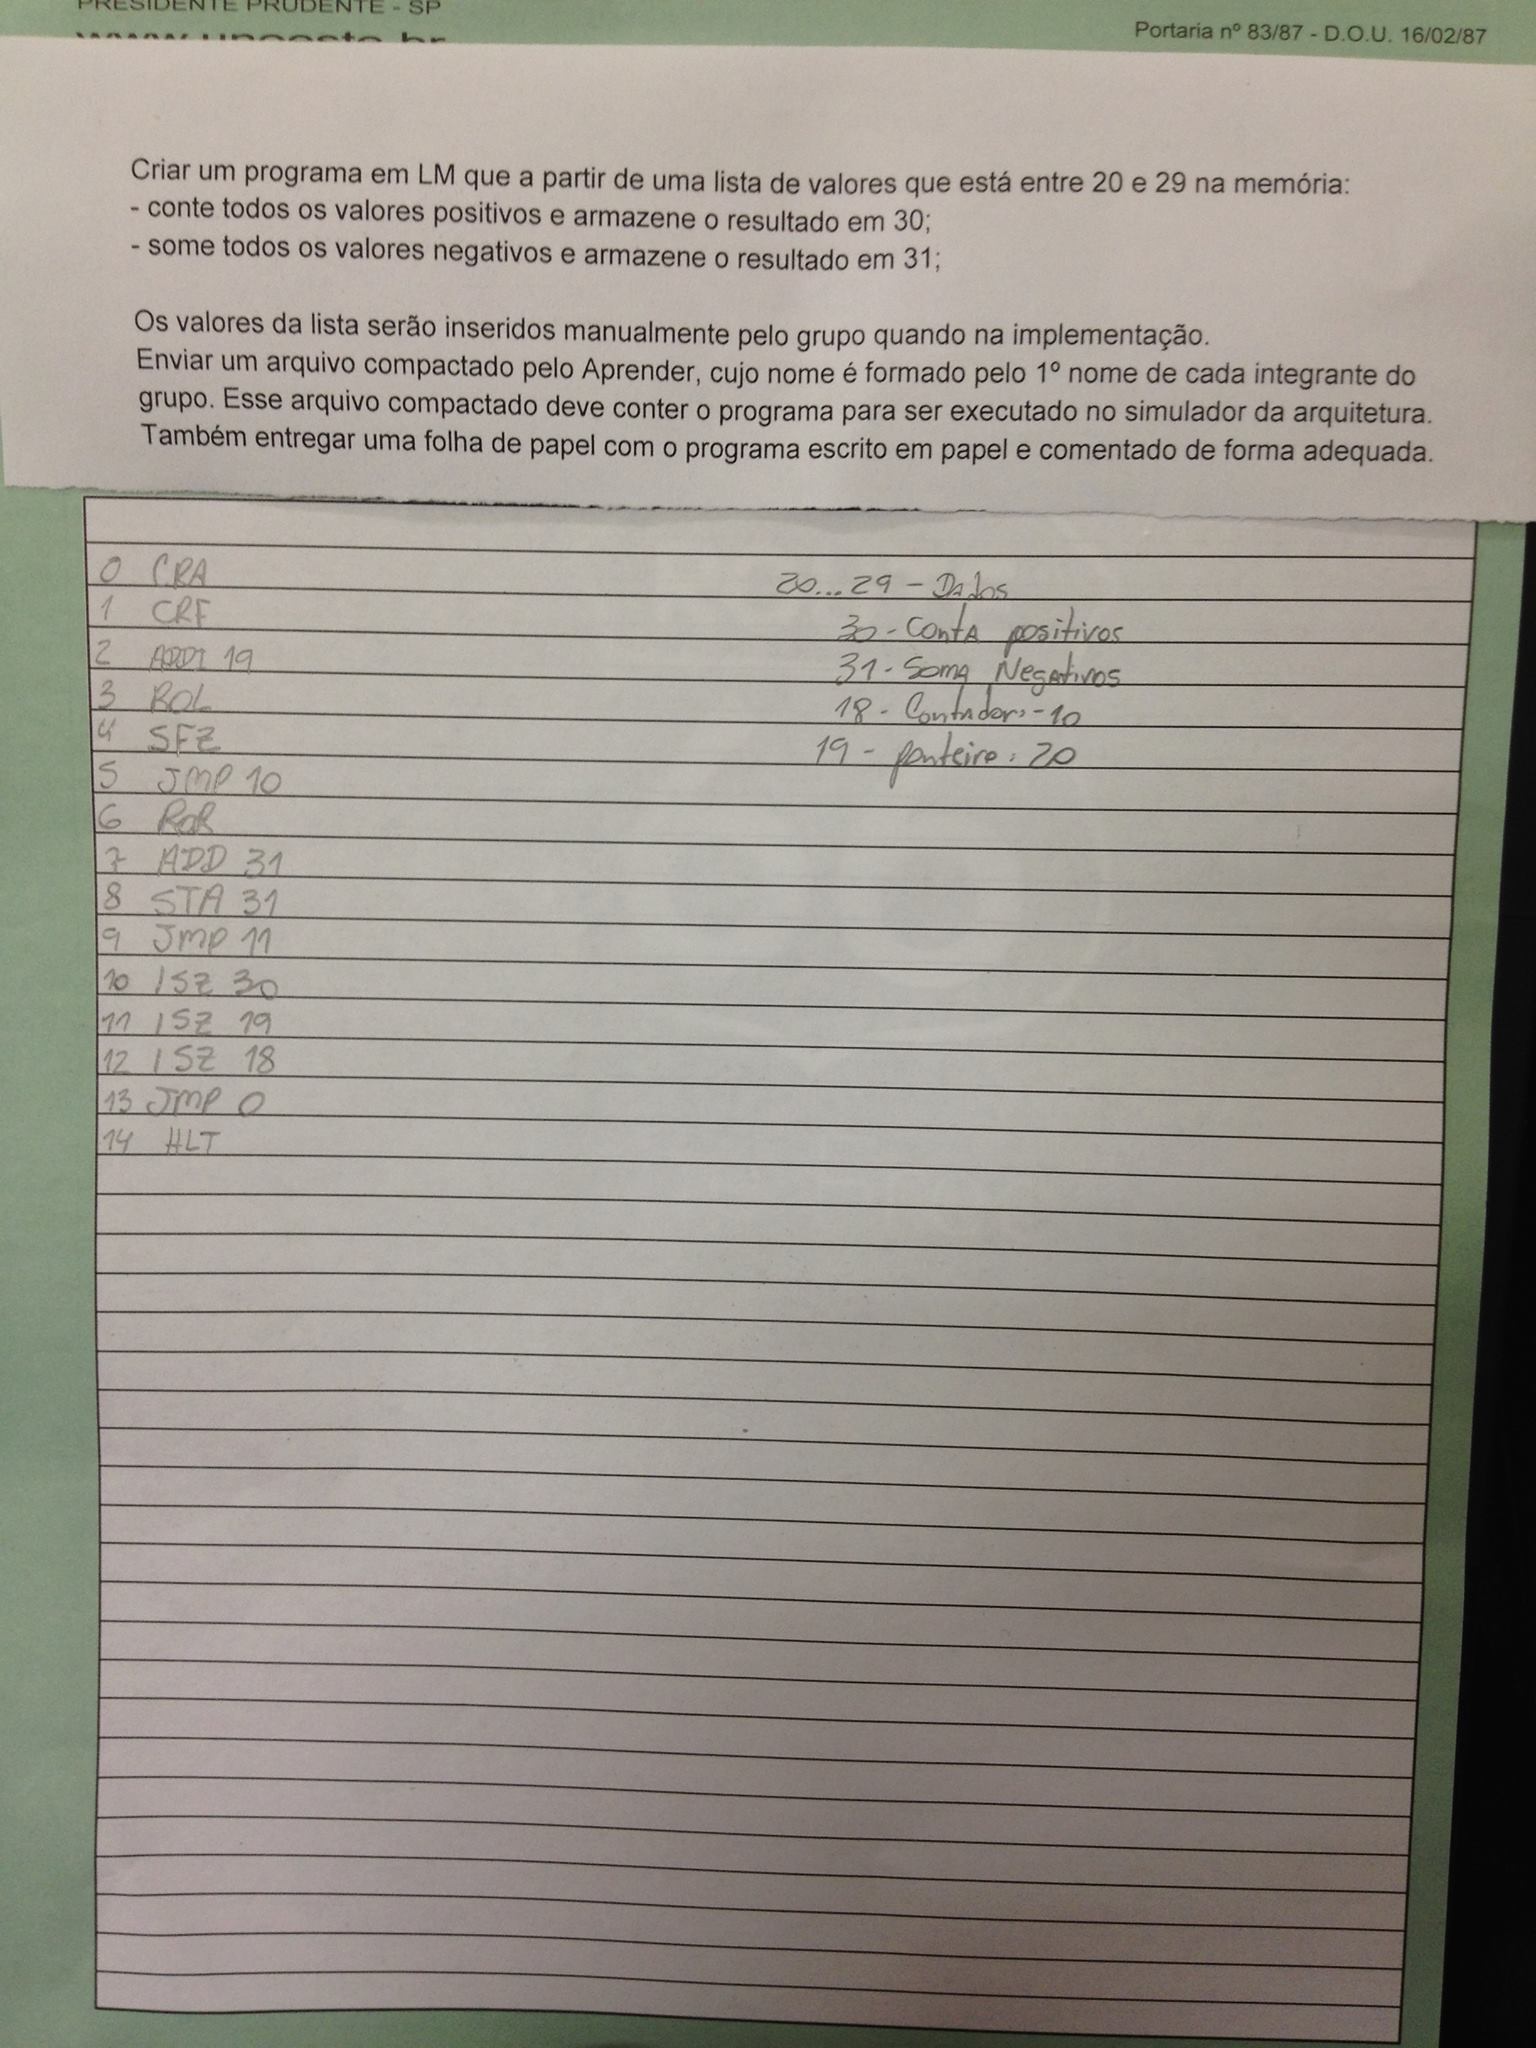 PRESIDENTE PRUDENTE - SP
www.unoeste.br
Portaria nº 83/87 - D.O.U. 16/02/87
Criar um programa em LM que a partir de uma lista de valores que está entre 20 e 29 na memória:
- conte todos os valores positivos e armazene o resultado em 30;
- some todos os valores negativos e armazene o resultado em 31;
Os valores da lista serão inseridos manualmente pelo grupo quando na implementação.
Enviar um arquivo compactado pelo Aprender, cujo nome é formado pelo 1º nome de cada integrante do
grupo. Esse arquivo compactado deve conter o programa para ser executado no simulador da arquitetura.
Também entregar uma folha de papel com o programa escrito em papel e comentado de forma adequada.
0 CRA
1 CRF
2 ADDI 19
3 ROL
4 SFZ
5 JMP 10
6 ROR
7 ADD 31
8 STA 31
9 JMP 11
10 ISZ 30
11 ISZ 19
12 ISZ 18
13 JMP 0
14 HLT
20...29 - Dados
30 - Conta positivos
31 - Soma Negativos
18 - Contador: -10
19 - ponteiro: 20